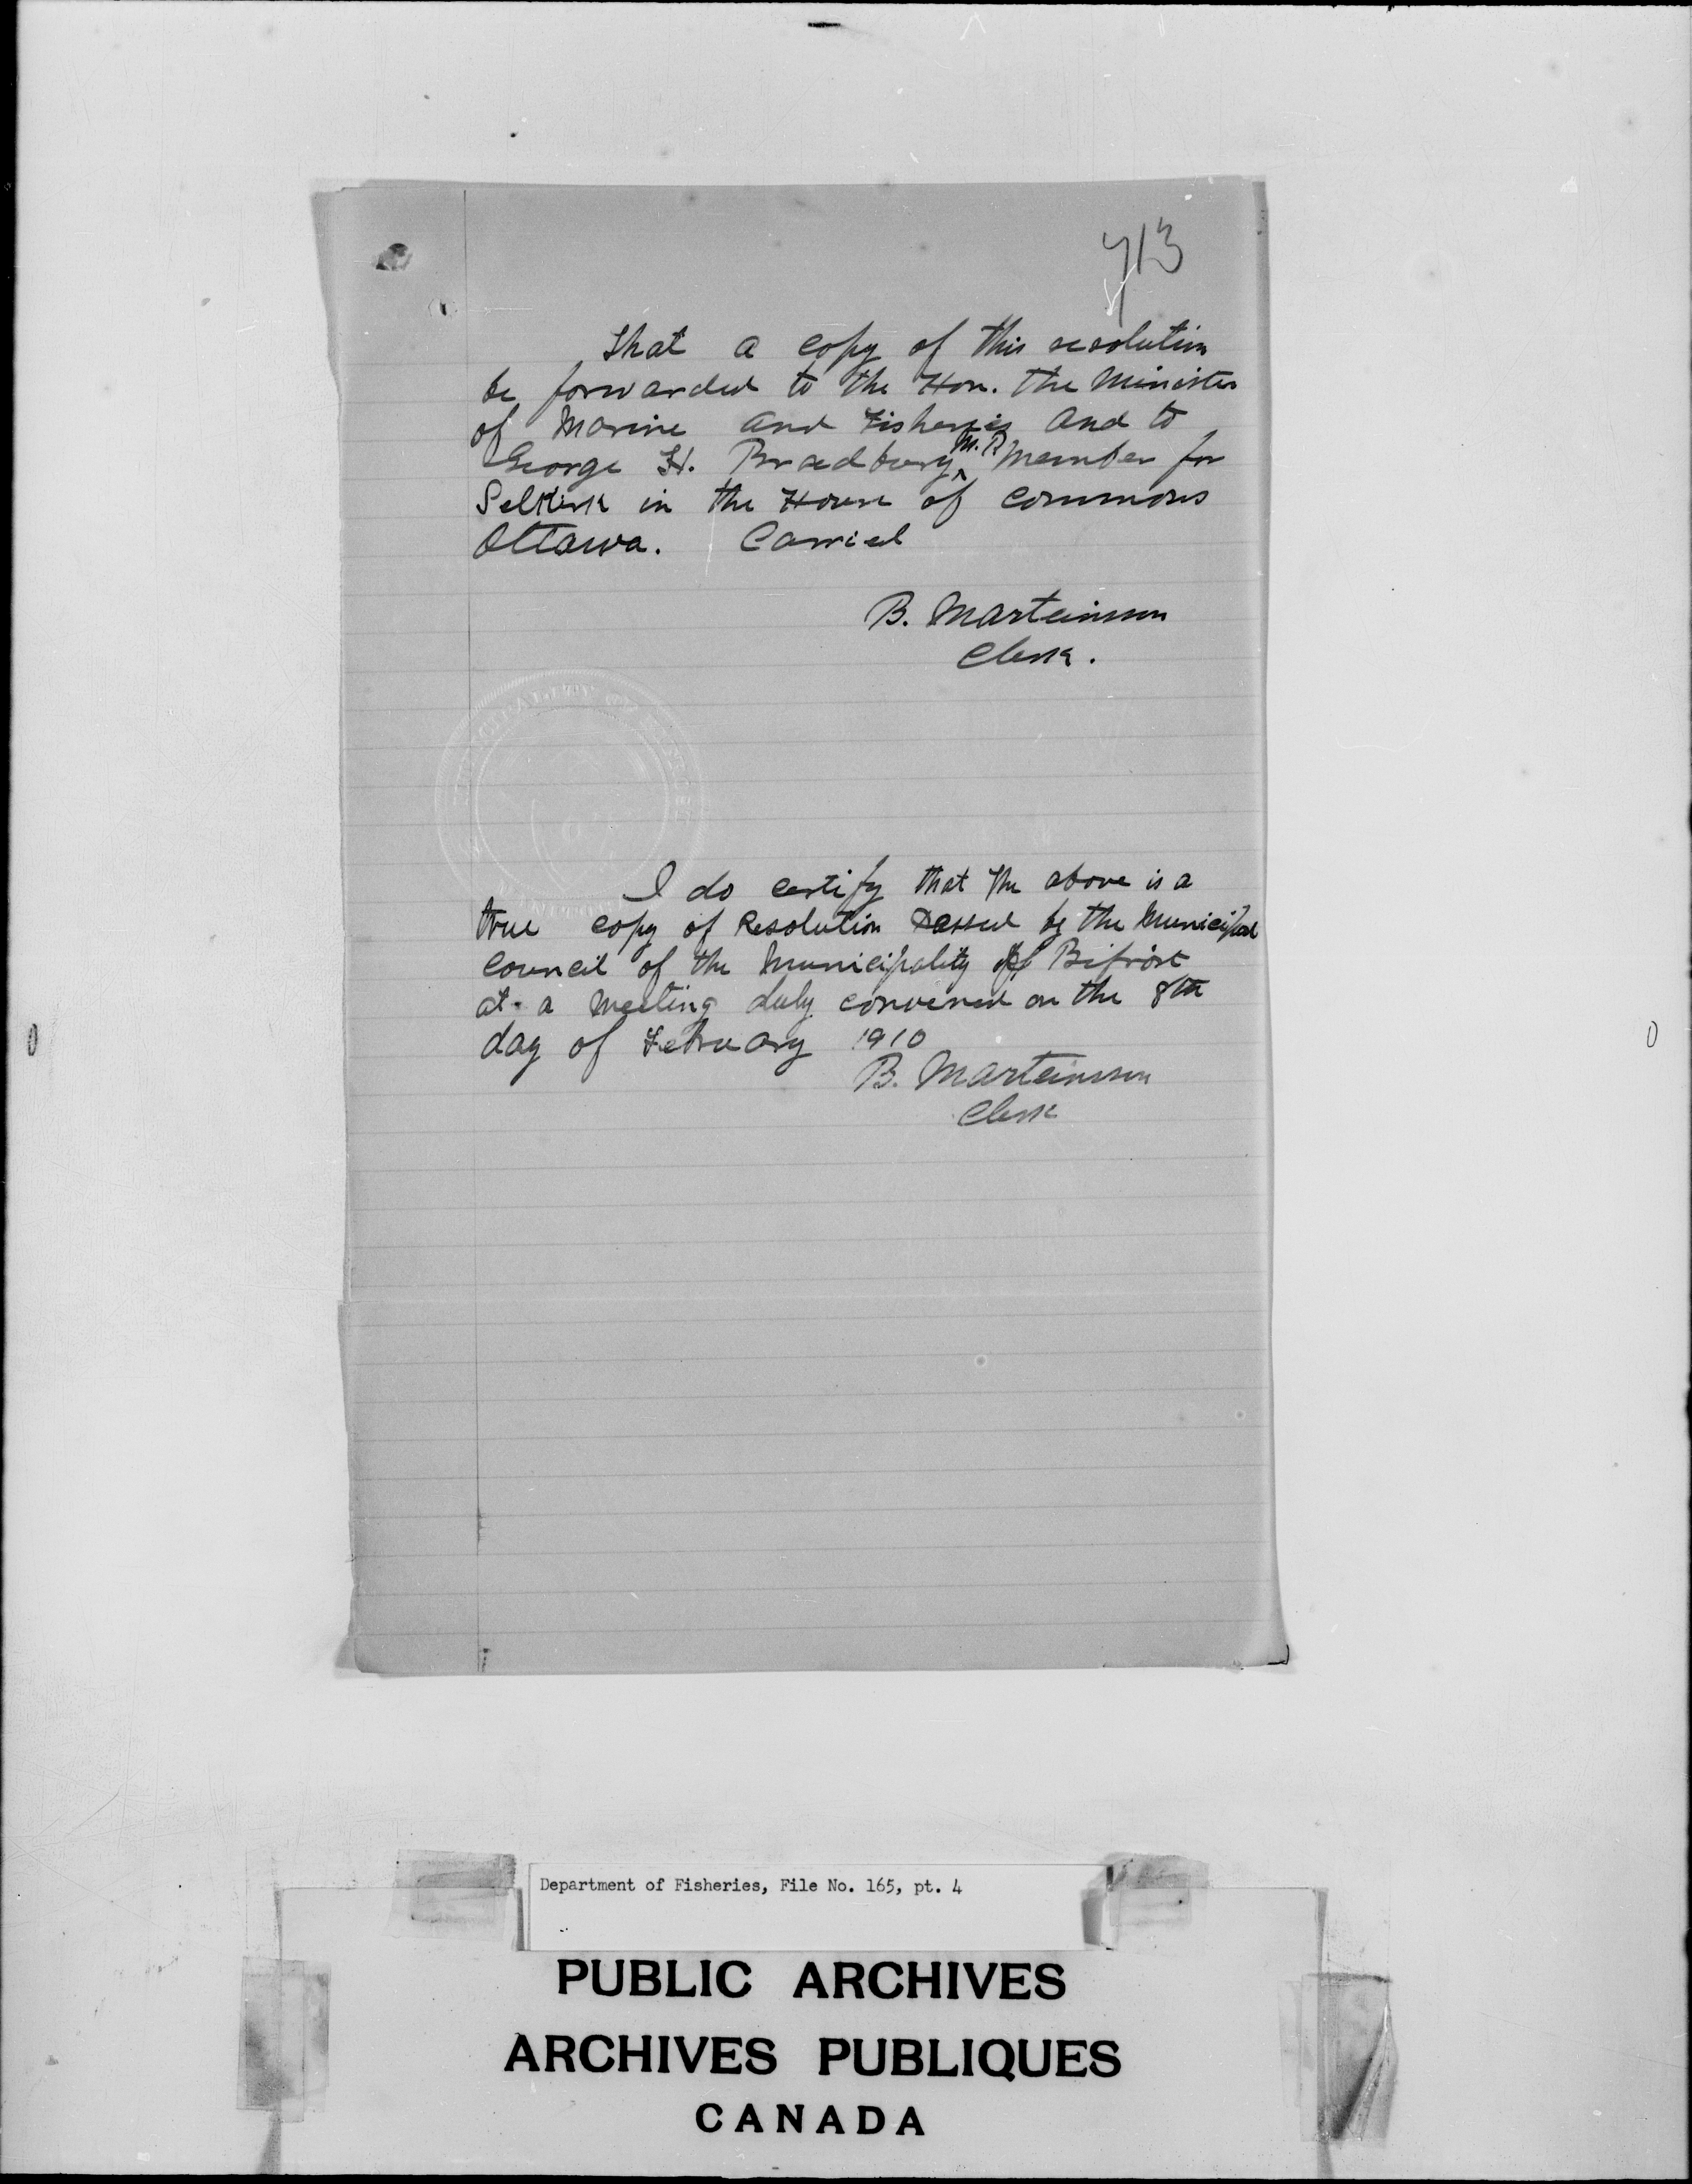 713
That a copy of this resolution
be forwarded to the Hon. the Minister
of Marine and Fisheries and to
George H. Bradbury M.P. Member for
Selkirk in the House of Commons
Ottawa. Carried
B. Marteinsson
Clerk.
I do certify that the above is a
true copy of Resolution Passed by the Municipal
Council of the Municipality of Bifröst
at a meeting duly convened on the 8th
day of February 1910
B. Marteinsson
Clerk
Department of Fisheries, File No. 165, pt. 4
PUBLIC ARCHIVES
ARCHIVES PUBLIQUES
CANADA